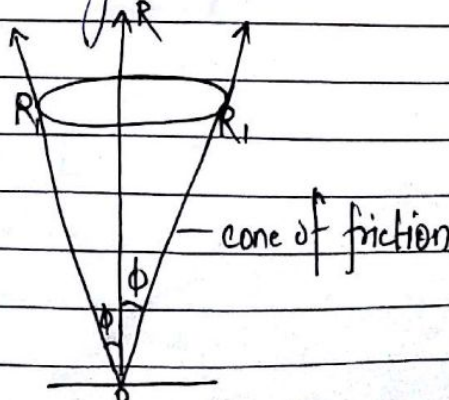 R
R₁
R₁
cone of friction
ϕ
ϕ